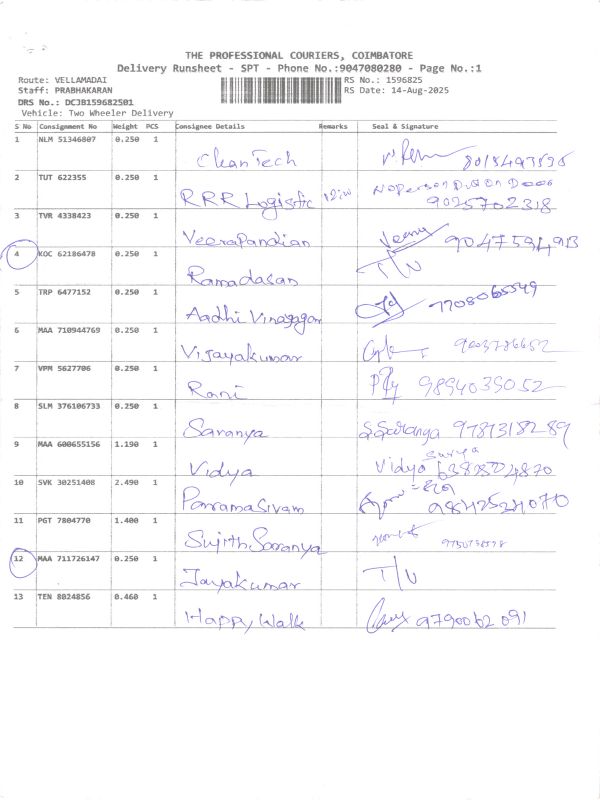 THE PROFESSIONAL COURIERS, COIMBATORE
Delivery Runsheet - SPT - Phone No.:9047080280 - Page No.:1
Route: VELLAMADAI RS No.: 1596825
Staff: PRABHAKARAN RS Date: 14-Aug-2025
DRS No.: DCJB159682501
Vehicle: Two Wheeler Delivery
S No Consignment No Weight PCS Consignee Details Remarks Seal & Signature
1 NLM 51346807 0.250 1
CleanTech
2 TUT 622355 0.250 1
RRR Logistic No Person Put On Door
9025702318
3 TVR 4338423 0.250 1
VeeraPandian Veera 9047594913
4 KOC 62186478 0.250 1
Ramadasan T/N
5 TRP 6477152 0.250 1
Aadhi Vinayagan 7708065549
6 MAA 710944769 0.250 1
Vijayakumar
7 VPM 5627706 0.250 1
Rani 9894035052
8 SLM 376106733 0.250 1
Saranya S.Saranya 9787318289
9 MAA 600655156 1.190 1 Surya
Vidya Vidya
10 SVK 30251408 2.490 1
Parramasivam 9842524070
11 PGT 7804770 1.400 1
Sujith Saranya
12 MAA 711726147 0.250 1
Jayakumar T/N
13 TEN 8024856 0.460 1
Happy Walk 9790062091